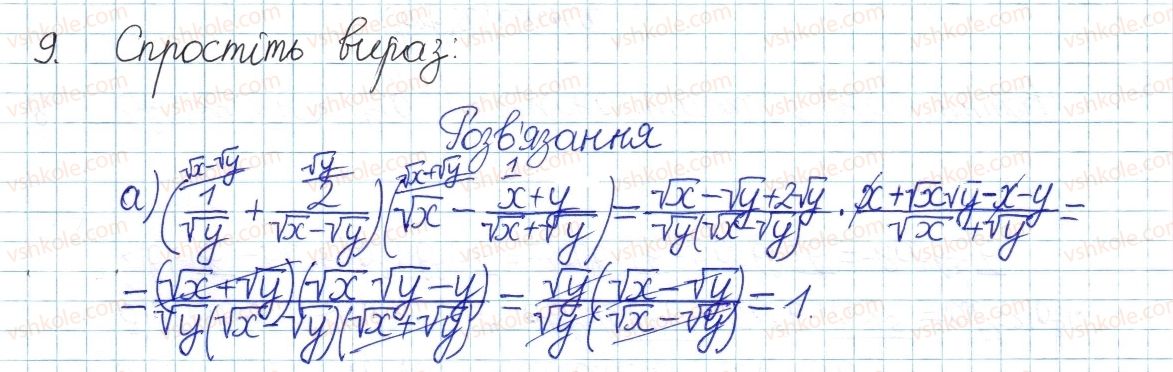 9. Спростіть вираз:
Розв'язання
а) (1/√y + 2/(√x-√y))(√x - (x+y)/(√x+√y)) = (√x-√y+2√y)/(√y(√x-√y)) · (x+√x√y-x-y)/(√x+√y) =
= ((√x+√y)(√x√y-y))/(√y(√x-√y)(√x+√y)) = (√y(√x-√y))/(√y(√x-√y)) = 1.